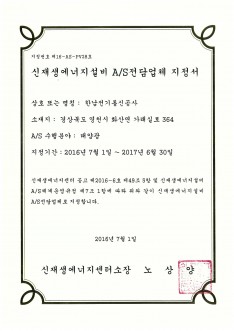 지정번호 제16-AS-PV38호
신재생에너지설비 A/S전담업체 지정서
상호 또는 명칭 : 한남전기통신공사
소재지 : 경상북도 영천시 화산면 가래실로 364
A/S 수행분야 : 태양광
지정기간 : 2016년 7월 1일 ~ 2017년 6월 30일
신재생에너지센터 공고 제2016-6호 제49조 3항 및 신재생에너지설비
A/S체계운영규정 제7조 1항에 따라 위와 같이 신재생에너지설비
A/S전담업체로 지정합니다.
2016년 7월 1일
신재생에너지센터소장 노 상 양